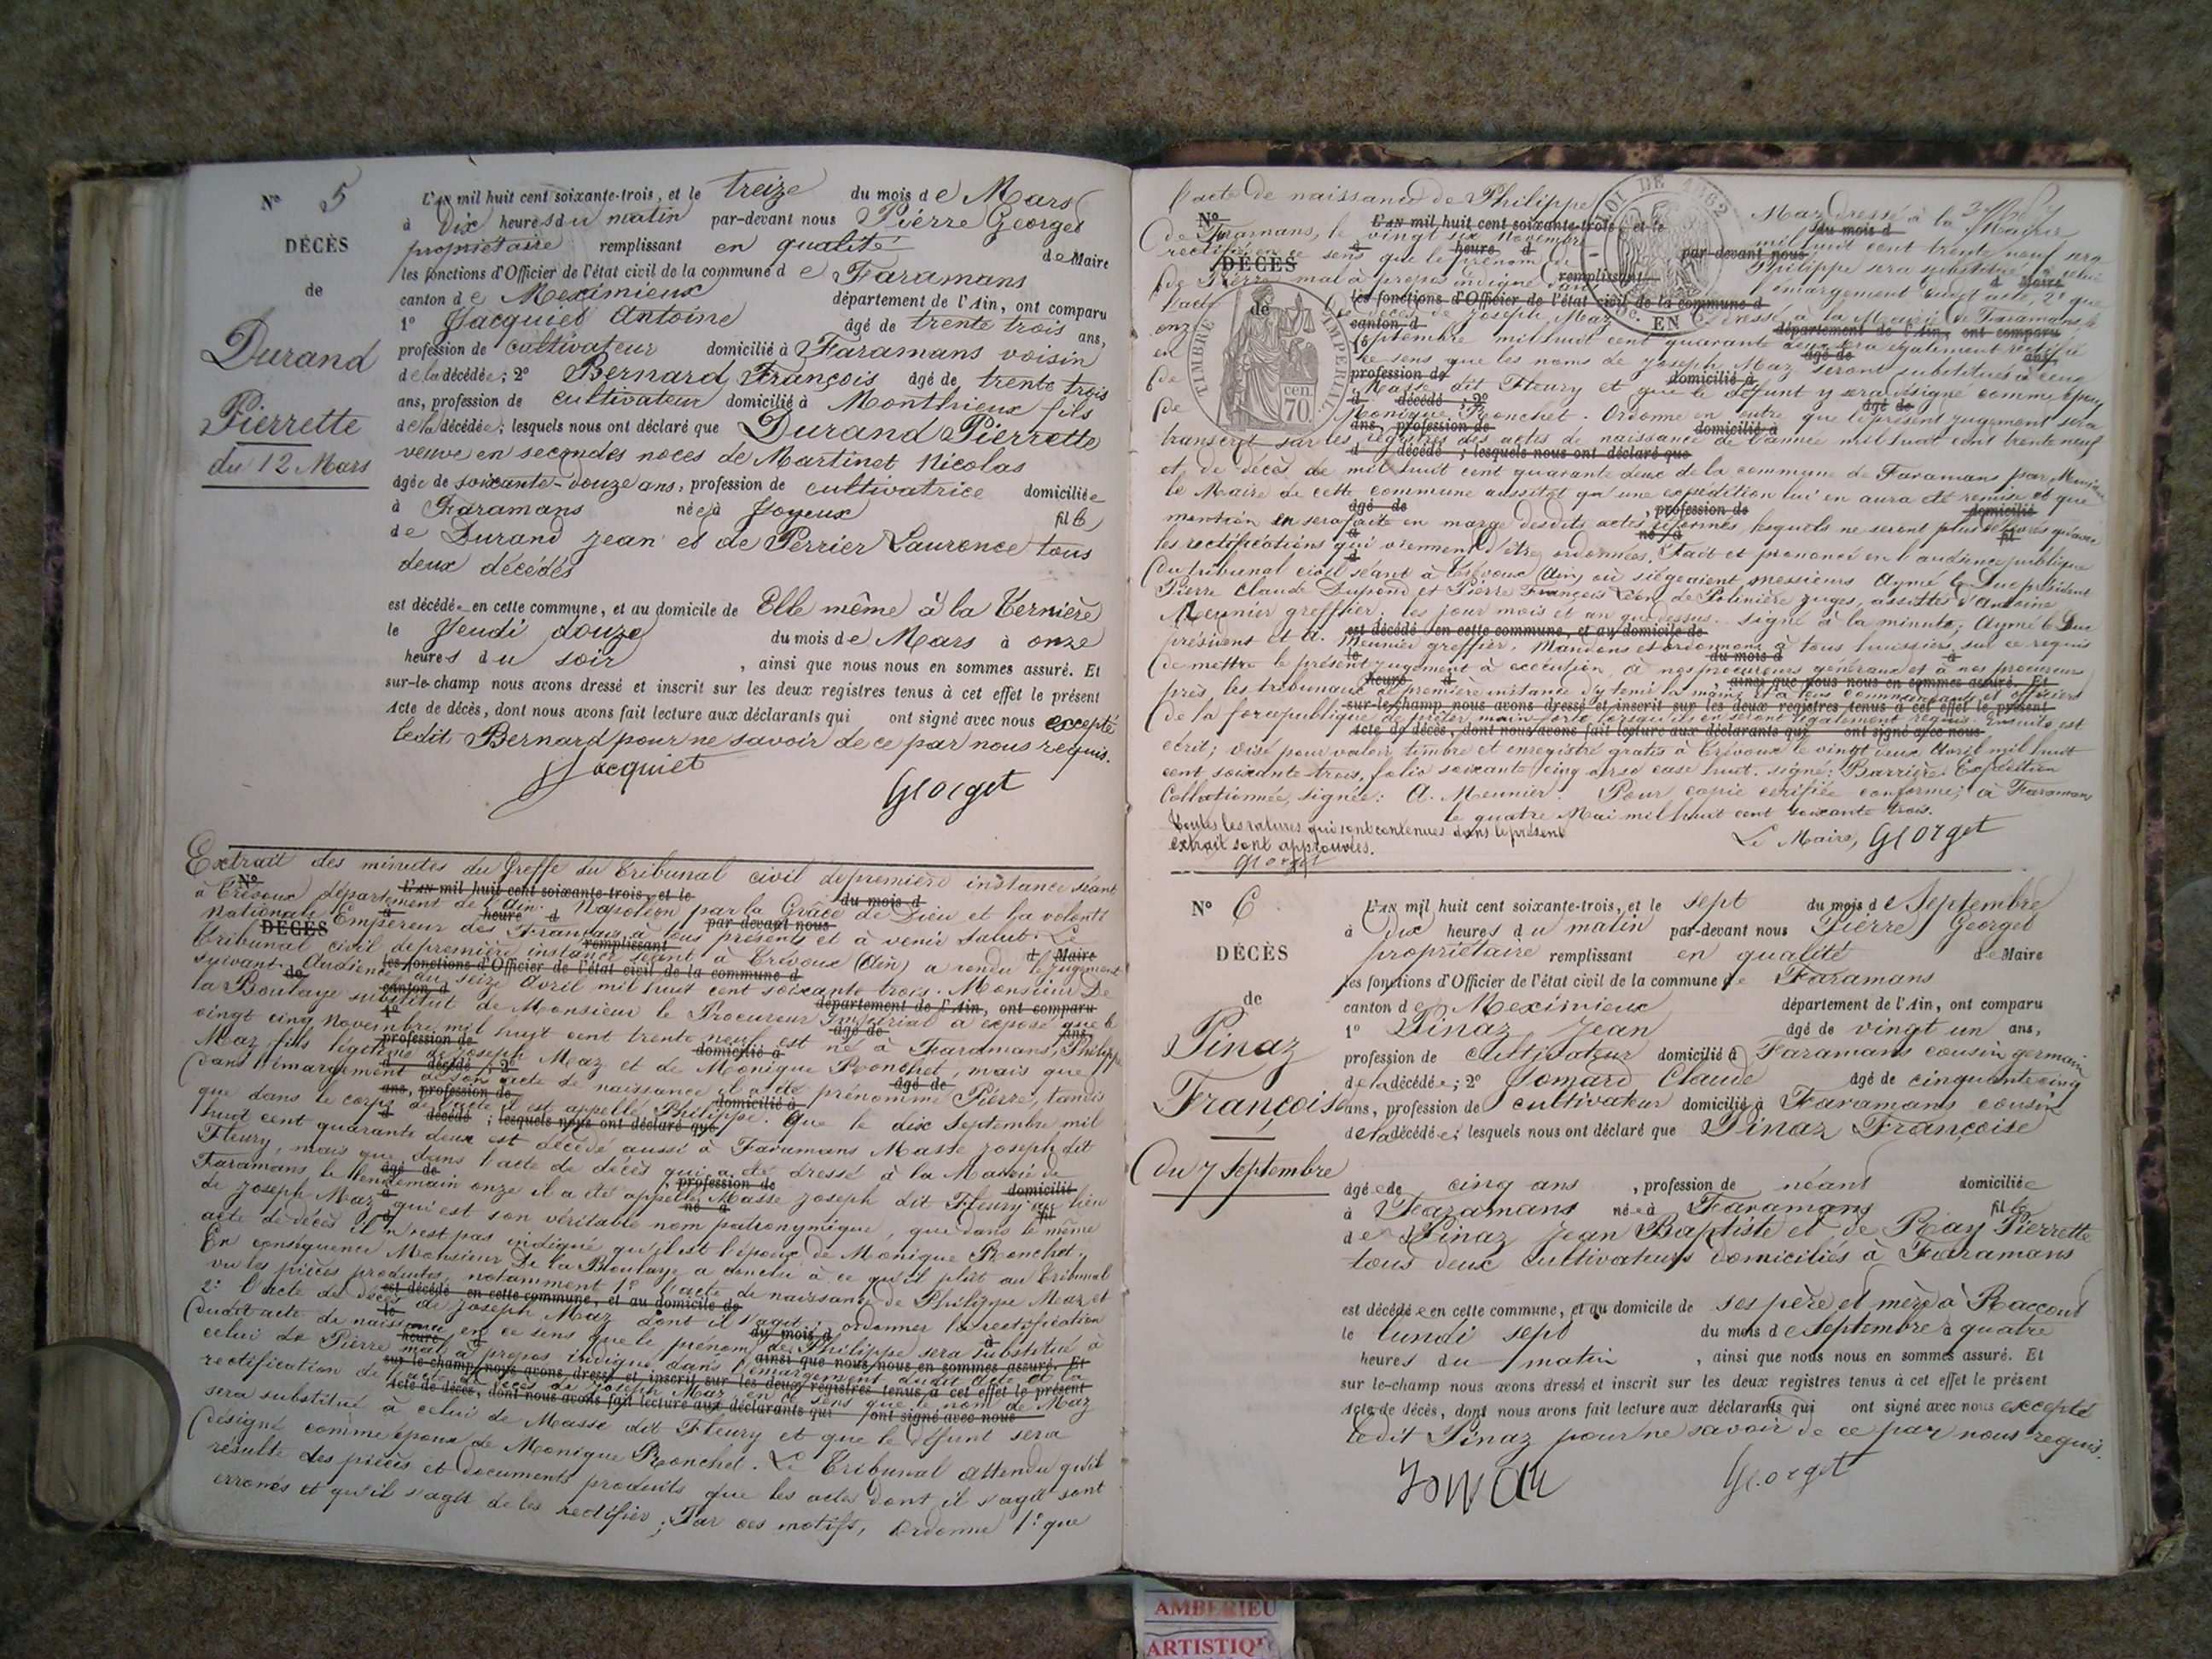 N° 5
DÉCÈS
de
Durand
Pierrette
du 12 Mars
L'AN mil huit cent soixante-trois, et le treize du mois de Mars
à Dix heures du matin par-devant nous Pierre Georget
propriétaire remplissant en qualité de Maire
les fonctions d'Officier de l'état civil de la commune de Faramans
canton de Meximieux département de l'Ain, ont comparu
1° Jacquiet Antoine âgé de trente trois ans,
profession de cultivateur domicilié à Faramans voisin
de la décédée; 2° Bernard François âgé de trente trois
ans, profession de cultivateur domicilié à Monthieux fils
de la décédée; lesquels nous ont déclaré que Durand Pierrette
veuve en secondes noces de Martinet Nicolas
âgée de soixante-douze ans, profession de cultivatrice domiciliée
à Faramans née à Joyeux fille
de Durand Jean et de Perrier Laurence tous
deux décédés
est décédée en cette commune, et au domicile de Elle même à la Ternière
le Jeudi douze du mois de Mars à onze
heures du soir, ainsi que nous nous en sommes assuré. Et
sur-le-champ nous avons dressé et inscrit sur les deux registres tenus à cet effet le présent
Acte de décès, dont nous avons fait lecture aux déclarants qui ont signé avec nous excepté
ledit Bernard pour ne savoir de ce par nous requis.
Jacquiet Georget
Extrait des minutes du Greffe du Tribunal civil de première instance séant
à Trévoux département de l'Ain. Napoléon par la Grâce de Dieu et la volonté
Nationale Empereur des Français, à tous présents et à venir Salut. Le
Tribunal civil de première instance séant à Trévoux (Ain) a rendu le jugement
suivant. Audience du seize Avril mil huit cent soixante trois. Monsieur De
la Boulaye substitut de Monsieur le Procureur Impérial a exposé que le
vingt cinq Novembre mil huit cent trente neuf est né à Faramans, Philippe
Maz fils légitime de Joseph Maz et de Monique Ronchet, mais que
dans l'émargement de son acte de naissance il a été prénommé Pierre, tandis
que dans le corps de l'acte il est appelé Philippe. Que le dix Septembre mil
huit cent quarante deux est décédé aussi à Faramans Masse Joseph dit
Fleury, mais que dans l'acte de décès qui a été dressé à la Mairie de
Faramans le lendemain onze il a été appelé Masse Joseph dit Fleury au lieu
de Joseph Maz qui est son véritable nom patronymique, que dans le même
acte de décès il n'est pas indiqué qu'il est l'époux de Monique Ronchet.
En conséquence Monsieur De la Boulaye a conclu à ce qu'il plût au Tribunal
vu les pièces produites, notamment 1° l'acte de naissance de Philippe Maz et
2° l'acte de décès de Joseph Maz dont il s'agit; ordonner la rectification
dudit acte de naissance en ce sens que le prénom de Philippe sera substitué à
celui de Pierre mal à propos indiqué dans l'émargement dudit acte et la
rectification de l'acte de décès de Joseph Maz en ce sens que le nom de Maz
sera substitué à celui de Masse dit Fleury et que le défunt sera
désigné comme époux de Monique Ronchet. Le Tribunal attendu qu'il
résulte des pièces et documents produits que les actes dont il s'agit sont
erronés et qu'il s'agit de les rectifier; Par ces motifs, Ordonne 1° que
l'acte de naissance de Philippe Maz dressé à la Mairie
de Faramans, le vingt six Novembre mil huit cent trente neuf sera
rectifié en ce sens que le prénom de Philippe sera substitué à celui
de Pierre mal à propos indiqué dans l'émargement dudit acte, 2° que
l'acte de décès de Joseph Maz dressé à la Mairie de Faramans le
onze Septembre mil huit cent quarante deux sera également rectifié
en ce sens que les noms de Joseph Maz seront substitués à ceux
de Masse dit Fleury et que le défunt y sera désigné comme époux
de Monique Ronchet. Ordonne en outre que le présent jugement sera
transcrit sur les registres des actes de naissance de l'année mil huit cent trente neuf
et de décès de mil huit cent quarante deux de la commune de Faramans par Monsieur
le Maire de cette commune aussitôt qu'une expédition lui en aura été remise et que
mention en sera faite en marge desdits actes réformés, lesquels ne seront plus délivrés qu'avec
les rectifications qui viennent d'être ordonnées. Fait et prononcé en l'audience publique
du tribunal civil séant à Trévoux (Ain) où siégeaient messieurs Aymé le Duc président
Pierre Claude Dupond et Pierre François Léon de Polinière juges, assistés d'Antoine
Meunier greffier. les jour mois et an que dessus. Signé à la minute; Aymé le Duc
président et A. Meunier greffier. Mandons et ordonnons à tous huissiers sur ce requis
de mettre le présent jugement à exécution, à nos procureurs généraux et à nos procureurs
près les tribunaux de première instance d'y tenir la main, et à tous commandants et officiers
de la force publique de prêter main forte lorsqu'ils en seront légalement requis. Ensuite est
écrit; visé pour valoir timbre et enregistré gratis à Trévoux le vingt deux Avril mil huit
cent soixante trois, folio soixante cinq verso case huit. signé: Barrière. Expédition
Collationnée, signée: A. Meunier. Pour copie certifiée conforme; à Faramans
le quatre Mai mil huit cent soixante trois.
Toutes les ratures qui sont contenues dans le présent
extrait sont approuvées.
Georget
Le Maire, Georget
TIMBRE IMPERIAL
70 cen
N° 6
DÉCÈS
de
Pinaz
Françoise
du 7 Septembre
L'AN mil huit cent soixante-trois, et le sept du mois de Septembre
à Dix heures du matin par-devant nous Pierre Georget
propriétaire remplissant en qualité de Maire
les fonctions d'Officier de l'état civil de la commune de Faramans
canton de Meximieux département de l'Ain, ont comparu
1° Pinaz Jean âgé de vingt un ans,
profession de cultivateur domicilié à Faramans cousin germain
de la décédée; 2° Jomard Claude âgé de cinquante cinq
ans, profession de cultivateur domicilié à Faramans cousin
de la décédée; lesquels nous ont déclaré que Pinaz Françoise
âgée de cinq ans, profession de néant domiciliée
à Faramans née à Faramans fille
de Pinaz Jean Baptiste et de Ray Pierrette
tous deux cultivateurs domiciliés à Faramans
est décédée en cette commune, et au domicile de ses père et mère à Raccout
le lundi sept du mois de Septembre à quatre
heures du matin, ainsi que nous nous en sommes assuré. Et
sur-le-champ nous avons dressé et inscrit sur les deux registres tenus à cet effet le présent
Acte de décès, dont nous avons fait lecture aux déclarants qui ont signé avec nous excepté
ledit Pinaz pour ne savoir de ce par nous requis.
Georget
AMBERIEU
ARTISTIQ